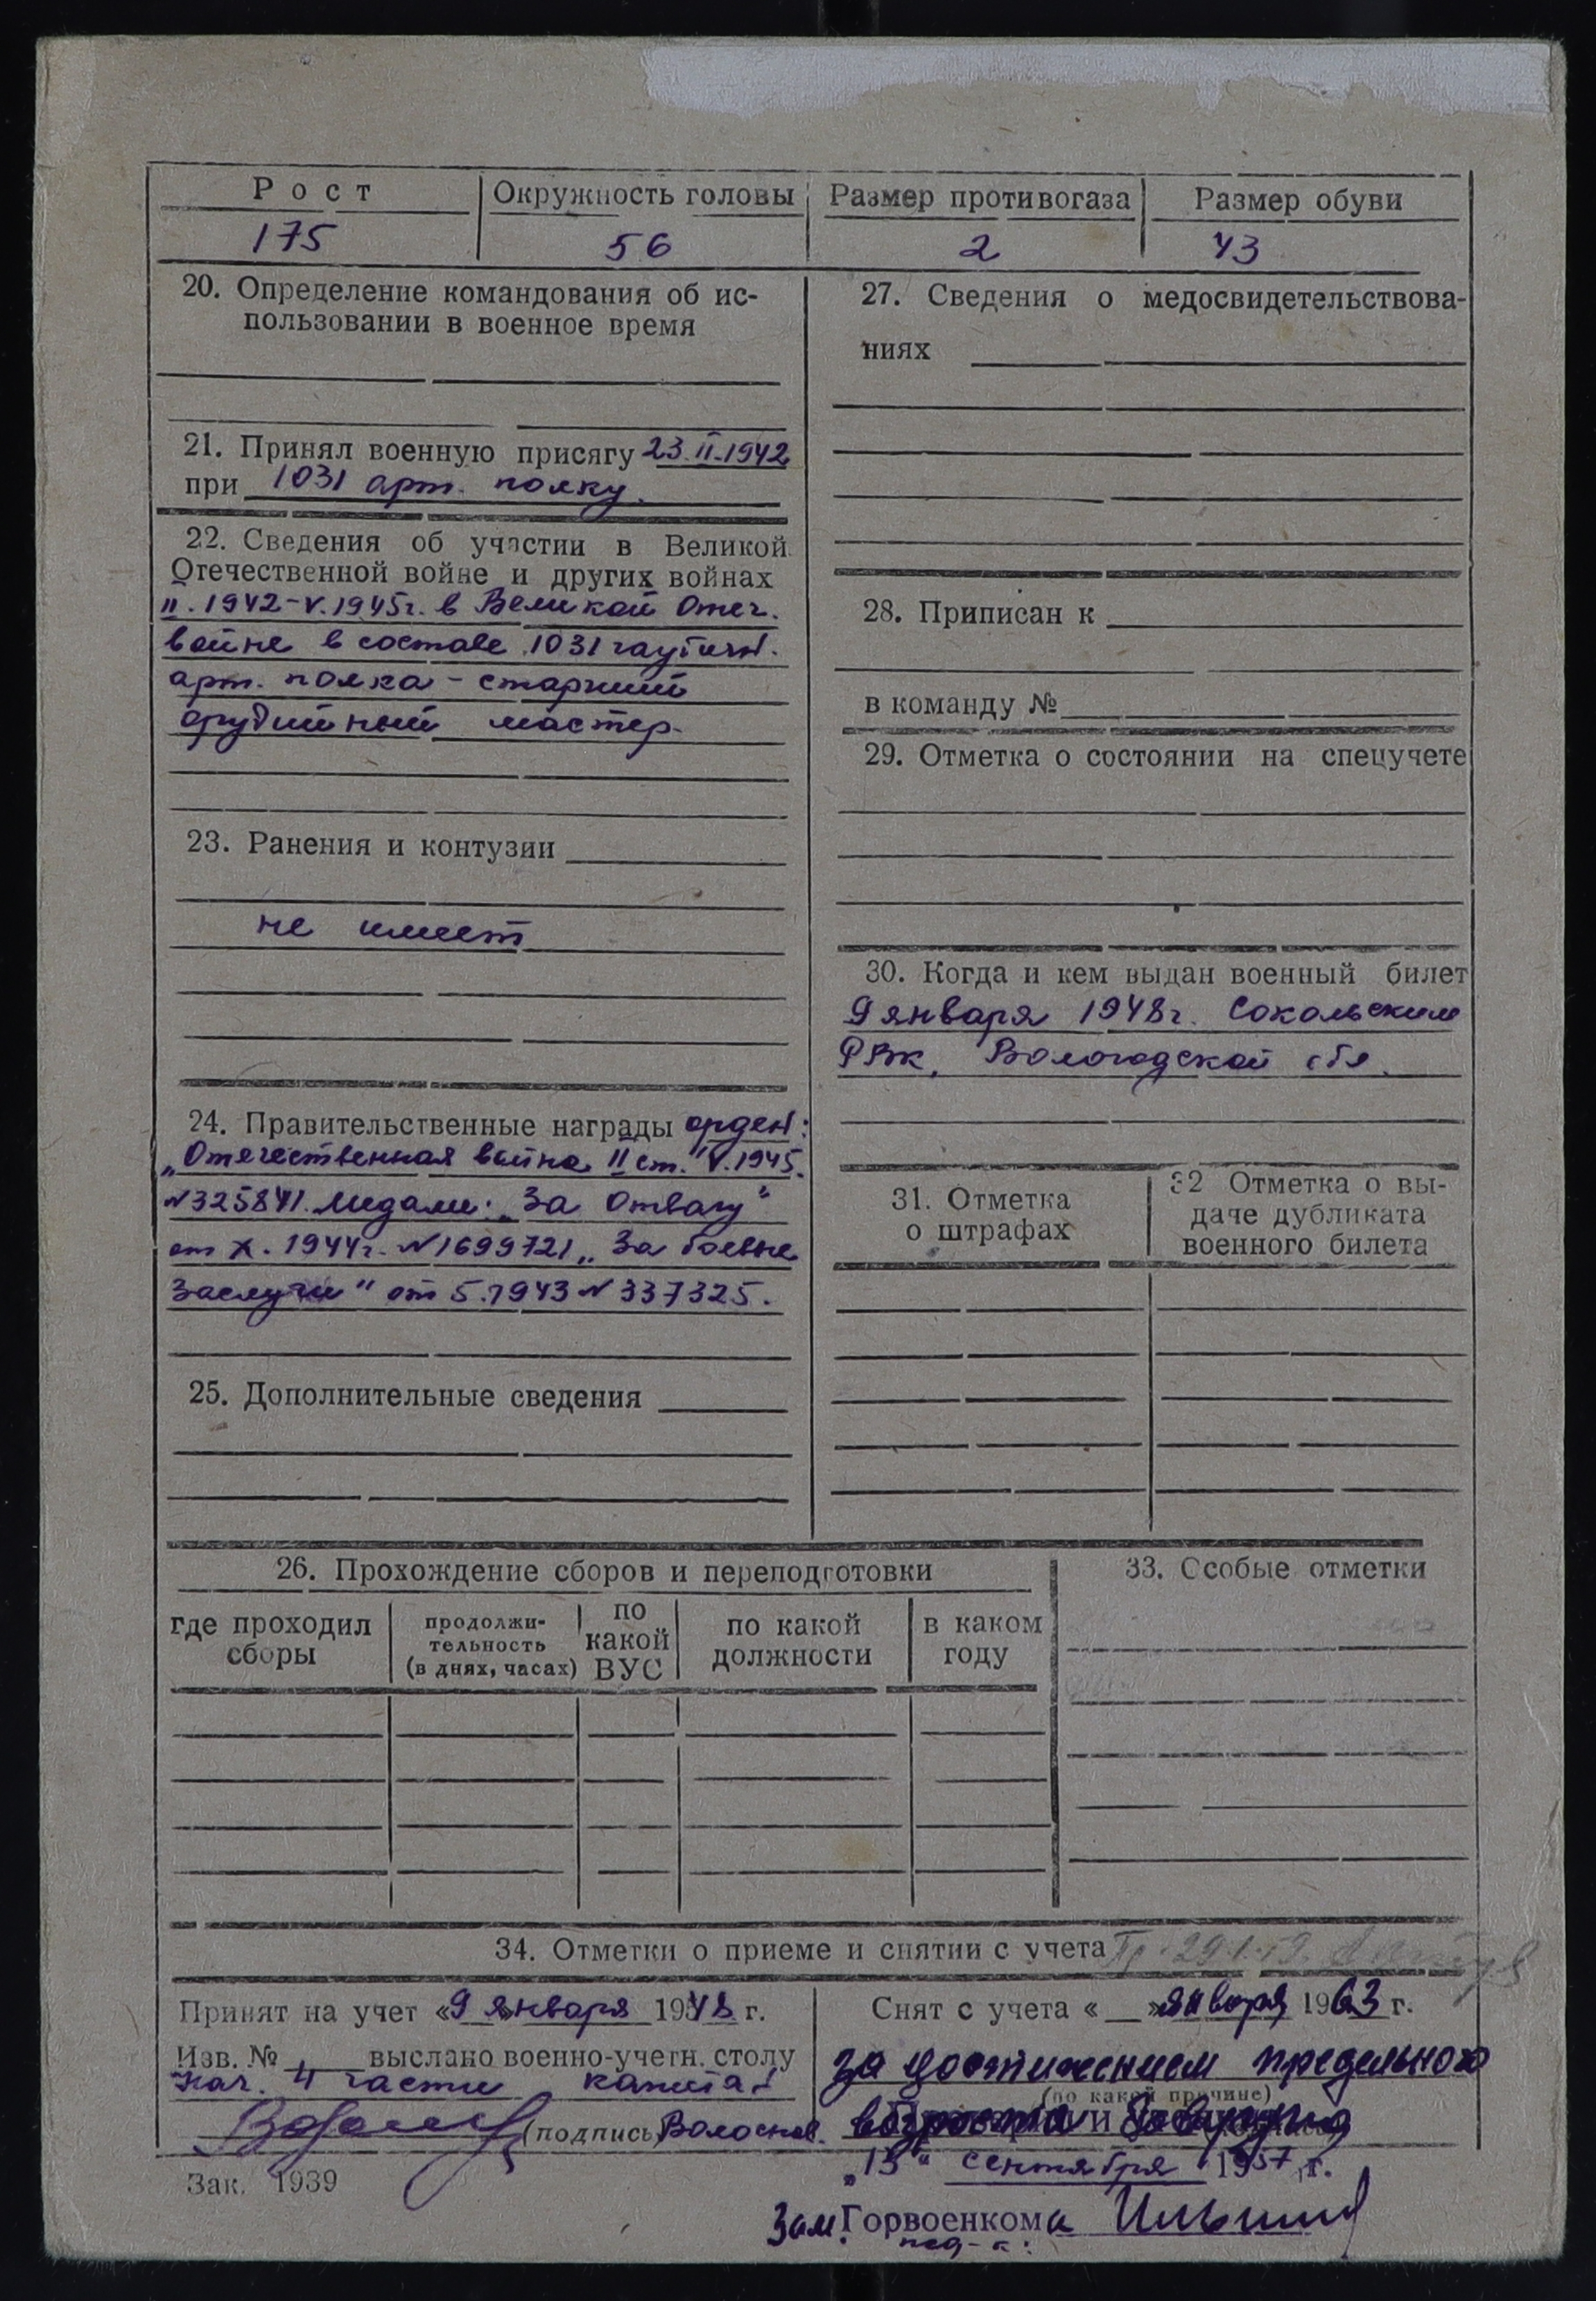 Рост
Окружность головы
Размер противогаза
Размер обуви
175
56
2
43
20. Определение командования об ис-
пользовании в военное время
21. Принял военную присягу 23.II.1942
при 1031 арт. полку.
22. Сведения об участии в Великой
Отечественной войне и других войнах
II.1942-V.1945г. в Великой Отеч.
войне в составе 1031 гаубичн.
арт. полка - старший
орудийный мастер.
23. Ранения и контузии
не имеет
24. Правительственные награды орден:
„Отечественная война II ст." V.1945.
N325841. Медали: „За Отвагу"
от X.1944г. N1699721 „За боевые
заслуги" от 5.1943 N 337325.
25. Дополнительные сведения
27. Сведения о медосвидетельствова-
ниях
28. Приписан к
в команду №
29. Отметка о состоянии на спецучете
30. Когда и кем выдан военный билет
9 января 1948г. Сокольским
РВК, Вологодской обл.
31. Отметка
о штрафах
32 Отметка о вы-
даче дубликата
военного билета
26. Прохождение сборов и переподготовки
где проходил
сборы
продолжи-
тельность
(в днях, часах)
по
какой
ВУС
по какой
должности
в каком
году
33. Особые отметки
34. Отметки о приеме и снятии с учета
Принят на учет «9» января 1948 г.
Изв. № выслано военно-учетн. столу
Нач. 4 части капитан
(подпись)
Снят с учета « » января 1963 г.
за достижением предельного
(по какой причине)
возраста
„13" сентября 1957 г.
Зам. Горвоенкома
Зак. 1939